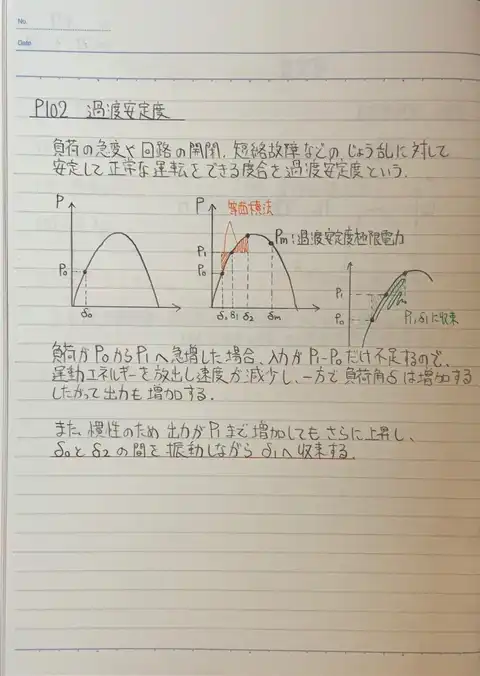 No.
Date
P102 過渡安定度
負荷の急変や回路の開閉、短絡故障などのじょう乱に対して
安定して正常な運転をできる度合を過渡安定度という.
P
P0
δ0
P
等面積法
Pm:過渡安定度極限電力
P1
P0
δ0 δ1 δ2 δm
P1
P0
P1,δ1に収束
負荷がP0からP1へ急増した場合、入力がP1-P0だけ不足するので、
運動エネルギーを放出し速度が減少し、一方で負荷角δは増加する
したがって出力も増加する.
また、慣性のため出力がP1まで増加してもさらに上昇し、
δ0とδ2の間を振動しながらδ1へ収束する.